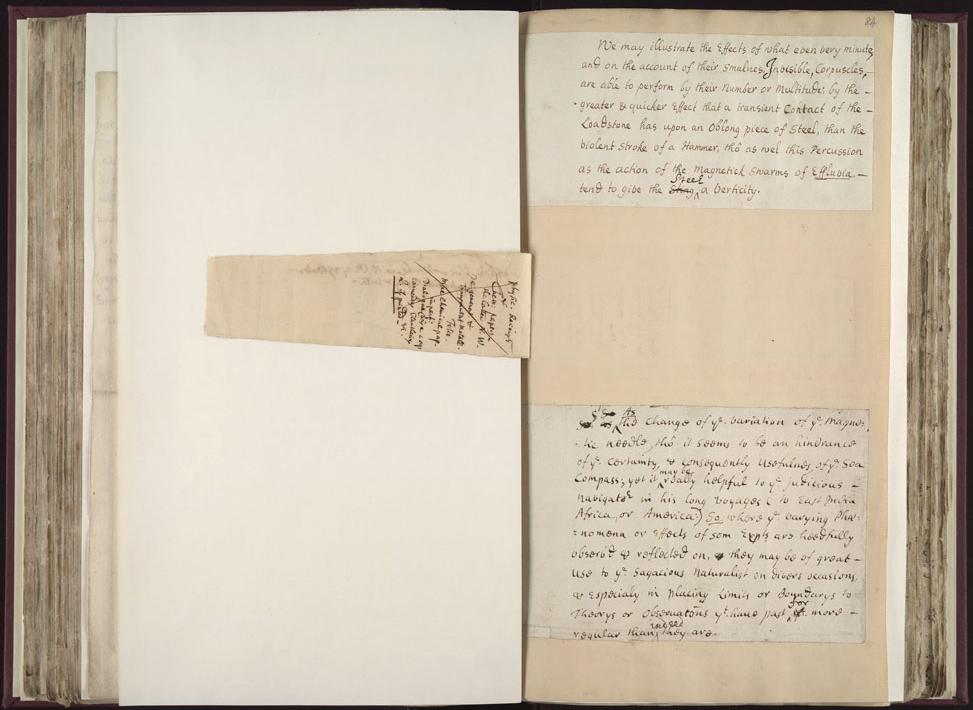 84
We may illustrate the Effects of what even very minute,
and on the account of their Smalnes, Invisible, Corpuscles, –
are able to perform by their Number or Multitude; by the –
greater & quicker Effect that a transient Contact of the –
Loadstone has upon an Oblong piece of Steel, than the
violent Stroke of a Hammer, thô as wel this Percussion
as the action of the Magnetick Swarms of Effluvia, –
tend to give the Steel a Verticity.
As this change of ye. variation of ye. Magne-
-tic needle, thô it seems to be an hindrance
of ye. certainty, & consequently Usefulnes of ye. Sea
Compass; yet it may be really helpful to ye. judicious –
Navigator in his long Voyages (to East India
Africa, or America:) So where ye. varying Phæ=
=nomena or Effects of som Expts are heedfully
observ'd & reflected on, they may be of great –
use to ye. Sagacious Naturalist on divers occasions,
& Especialy in placing Limits or Boundarys to
Theorys or Observations yt. have past for more –
regular than indeed they are.